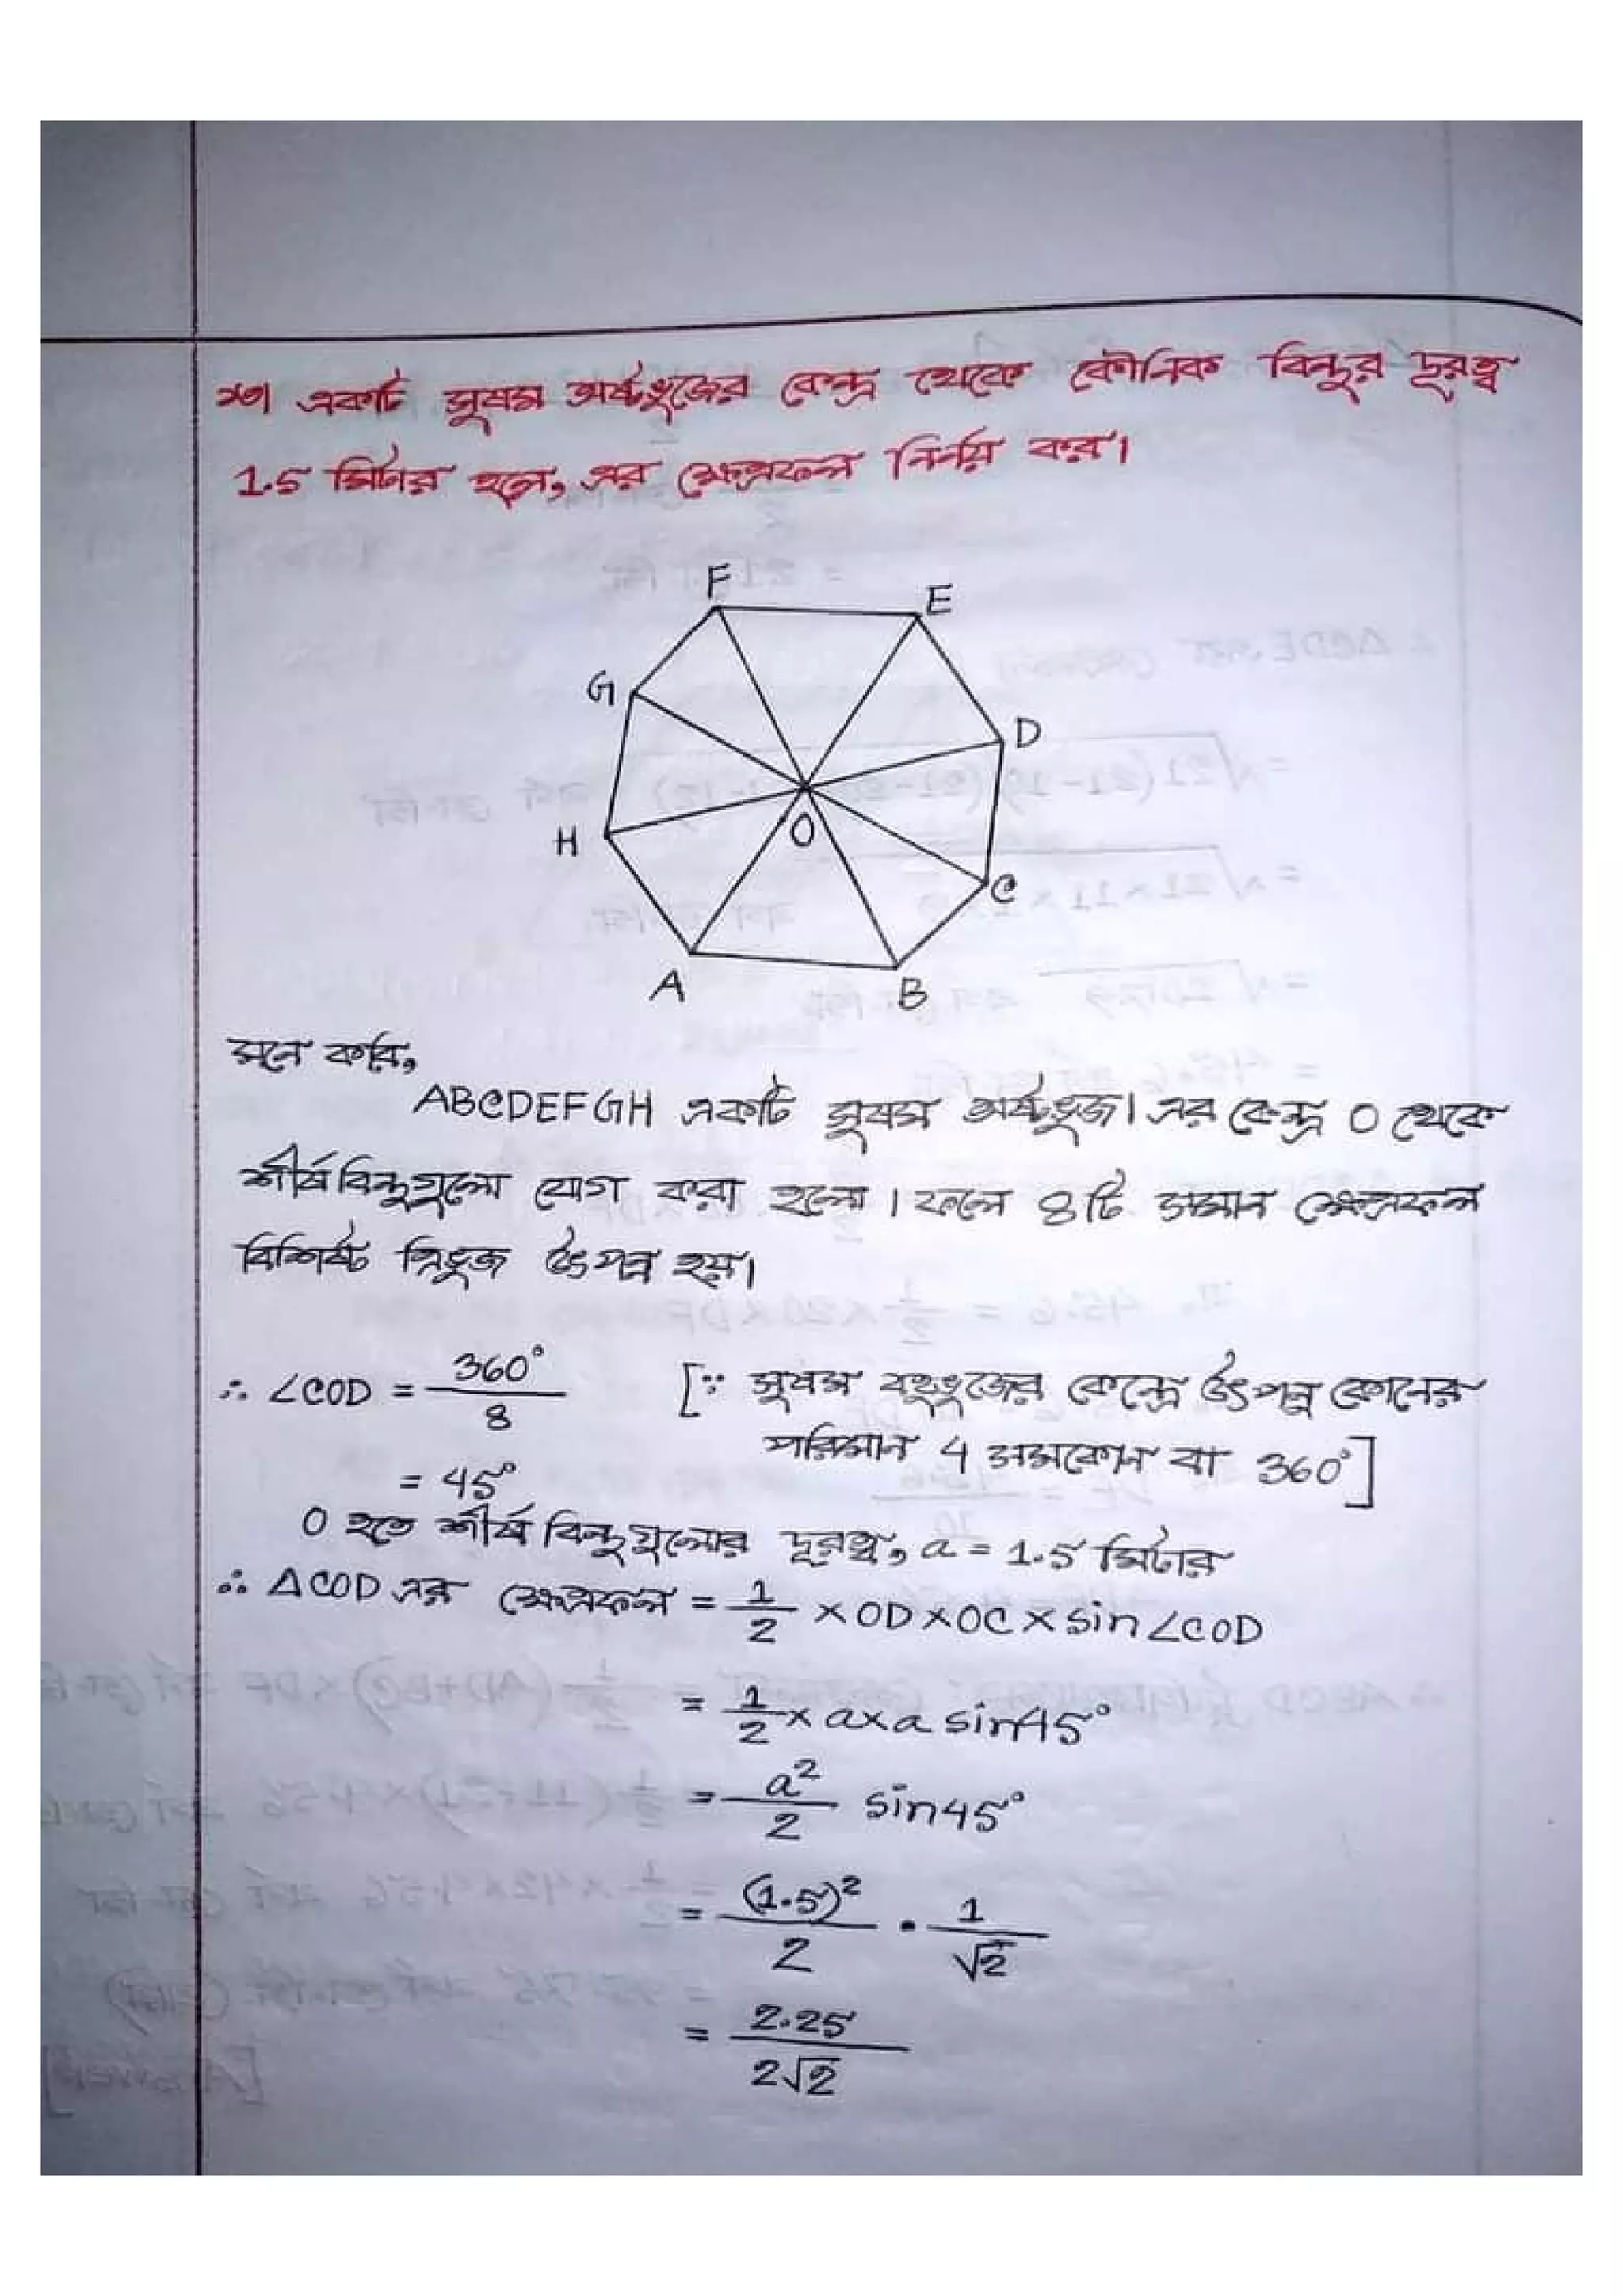 ১৩। একটি সুষম অষ্টভুজের কেন্দ্র থেকে কৌনিক বিন্দুর দূরত্ব
1.5 মিটার হলে, এর ক্ষেত্রফল নির্নয় কর।
F
E
G
D
O
H
C
A
B
মনে করি,
ABCDEFGH একটি সুষম অষ্টভুজ। এর কেন্দ্র O থেকে
শীর্ষবিন্দুগুলো যোগ করা হলো। ফলে 8টি সমান ক্ষেত্রফল
বিশিষ্ট ত্রিভুজ উৎপন্ন হয়।
∴ ∠COD = 360°/8 [∵ সুষম বহুভুজের কেন্দ্রে উৎপন্ন কোনের
পরিমান 4 সমকোণ বা 360°]
= 45°
O হতে শীর্ষ বিন্দুগুলোর দূরত্ব, a = 1.5 মিটার
∴ ΔCOD এর ক্ষেত্রফল = 1/2 × OD × OC × sin∠COD
= 1/2 × a × a sin45°
= a²/2 sin45°
= (1.5)²/2 · 1/√2
= 2.25/2√2